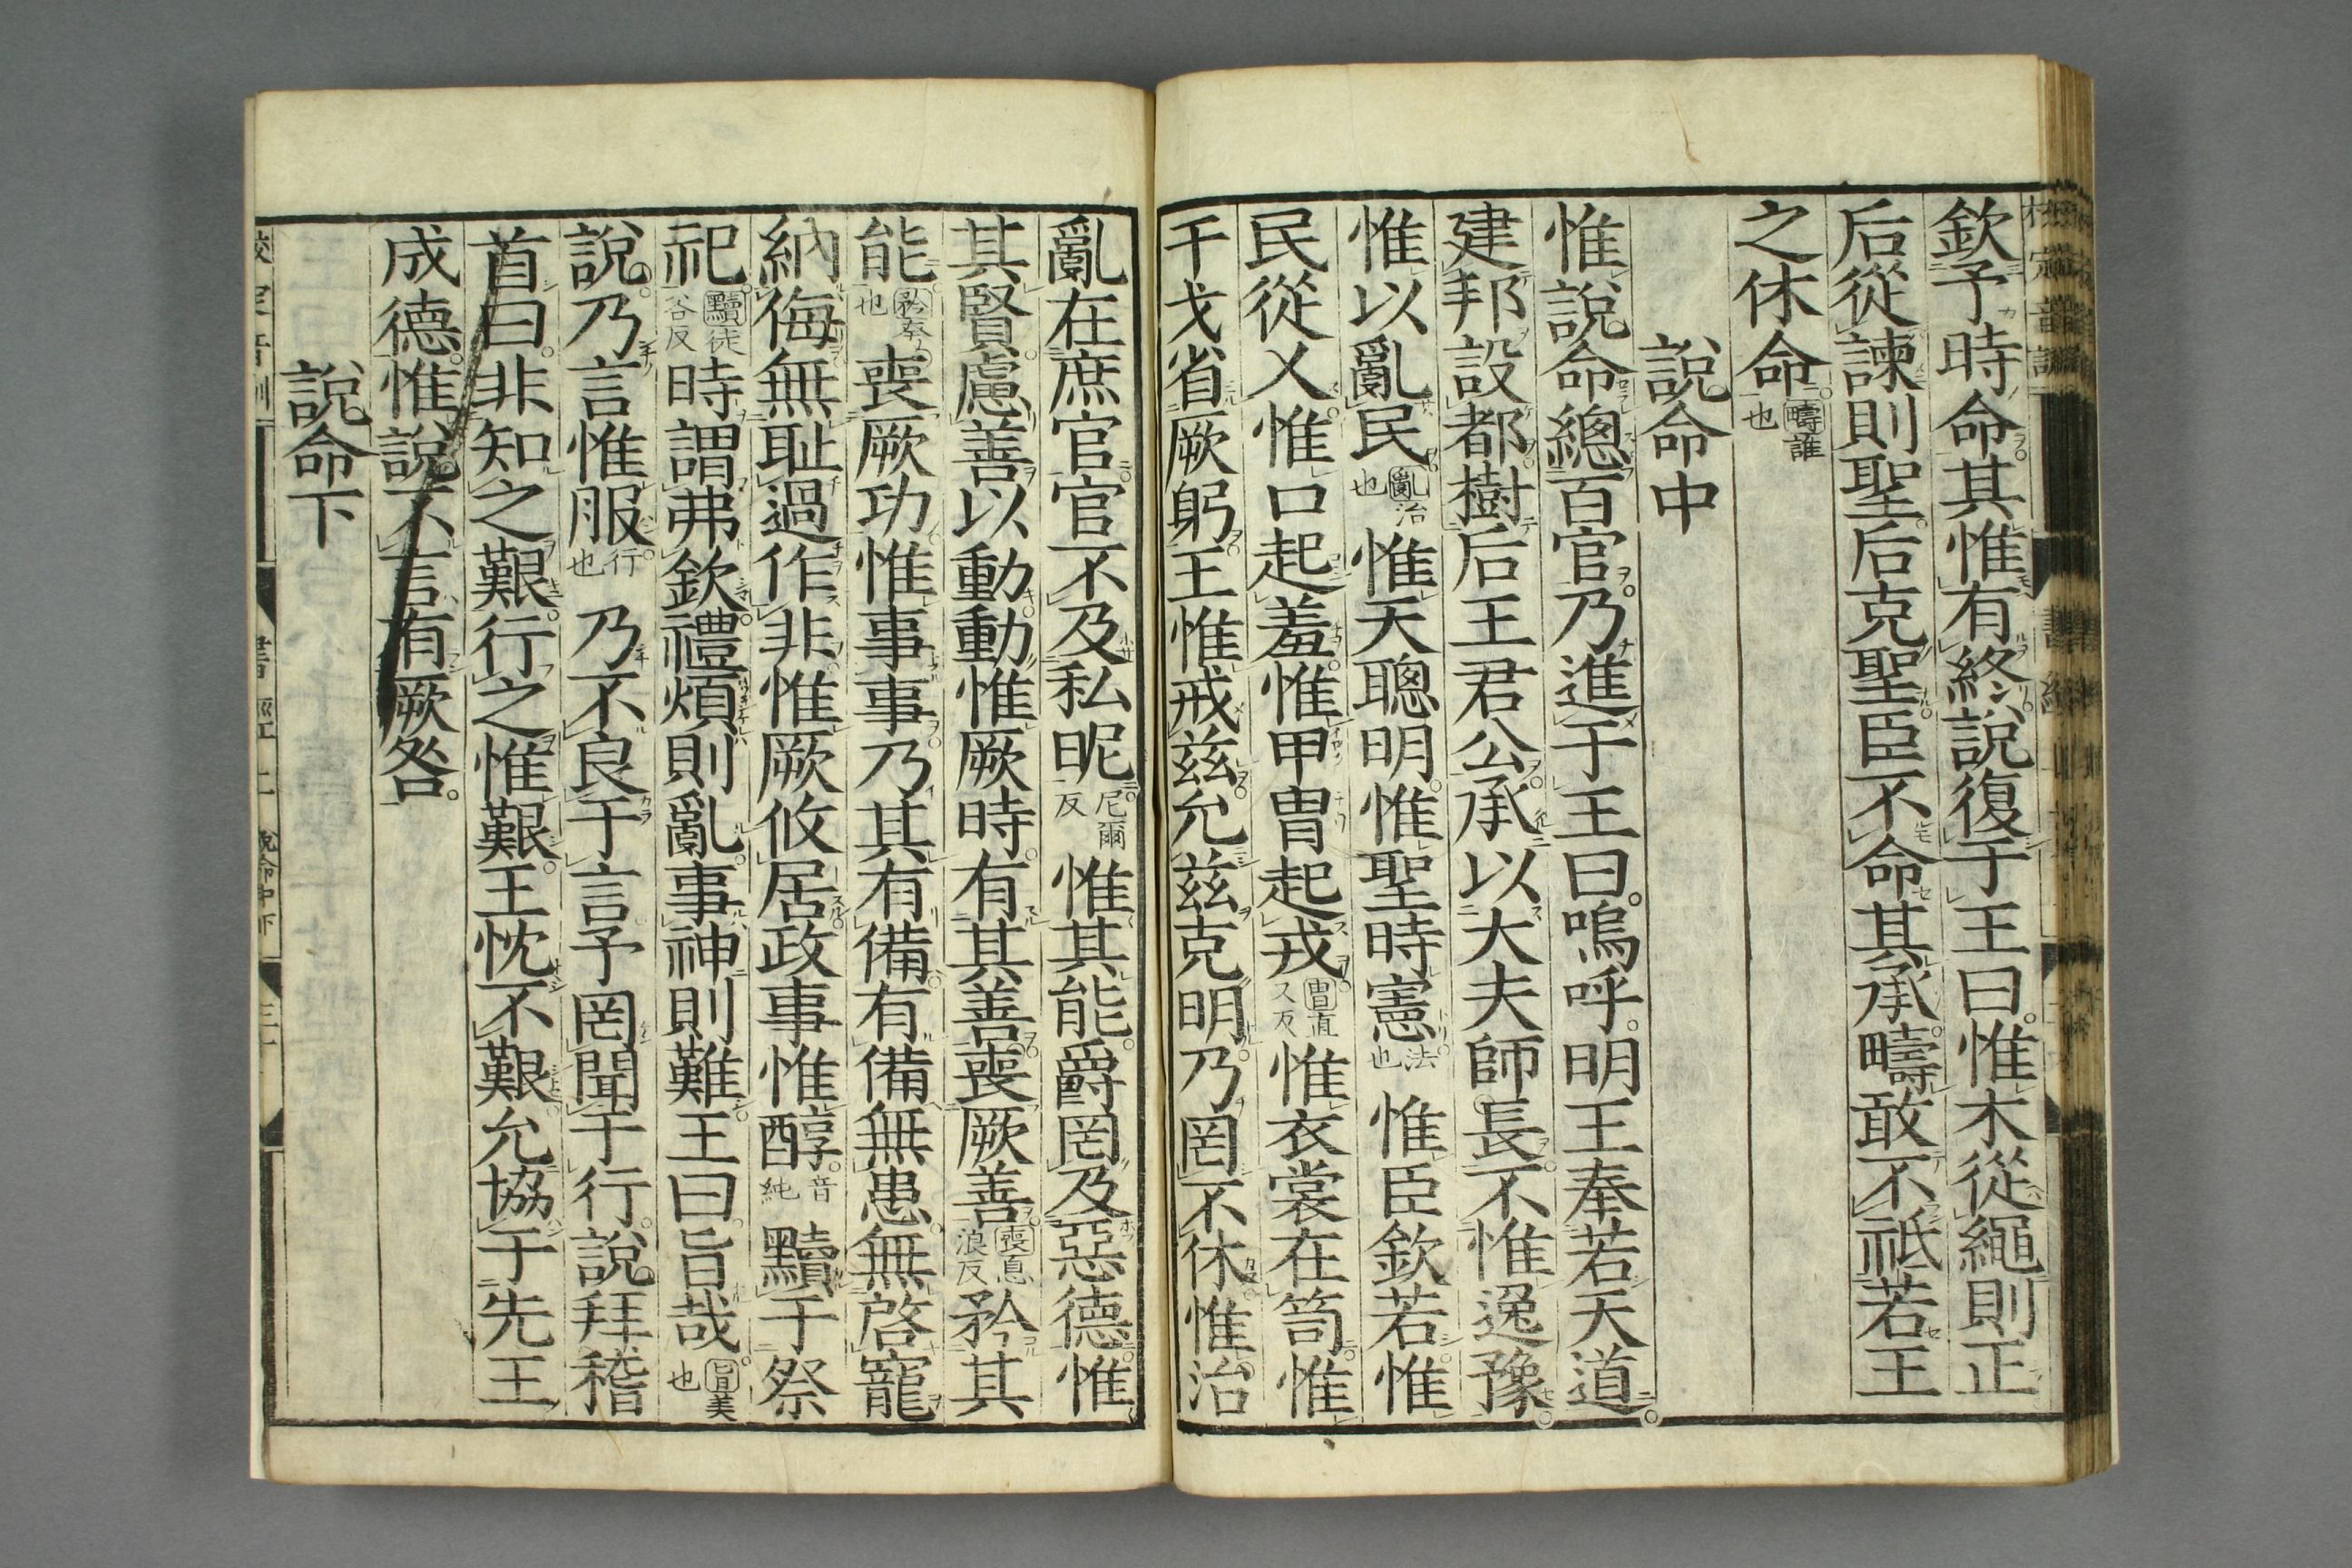 欽予時命其惟有終說復于王曰惟木從繩則正
后從諫則聖后克聖臣不命其承疇敢不祗若王
之休命疇誰也
說命中
惟說命總百官乃進于王曰嗚呼明王奉若天道
建邦設都樹后王君公承以大夫師長不惟逸豫
惟以亂民亂治也惟天聰明惟聖時憲法也惟臣欽若惟
民從乂惟口起羞惟甲冑起戎冑直又反惟衣裳在笥惟
干戈省厥躬王惟戒茲允茲克明乃罔不休惟治
亂在庶官官不及私昵尼爾反惟其能爵罔及惡德惟
其賢慮善以動動惟厥時有其善喪厥善喪息浪反矜其
能也喪厥功惟事事乃其有備有備無患無啓寵
納侮無耻過作非惟厥攸居政事惟醇音純黷于祭
祀黷徒谷反時謂弗欽禮煩則亂事神則難王曰旨哉旨美也
說乃言惟服行也乃不良于言予罔聞于行說拜稽
首曰非知之艱行之惟艱王忱不艱允協于先王
成德惟說不言有厥咎
說命下
書經上 說命中下